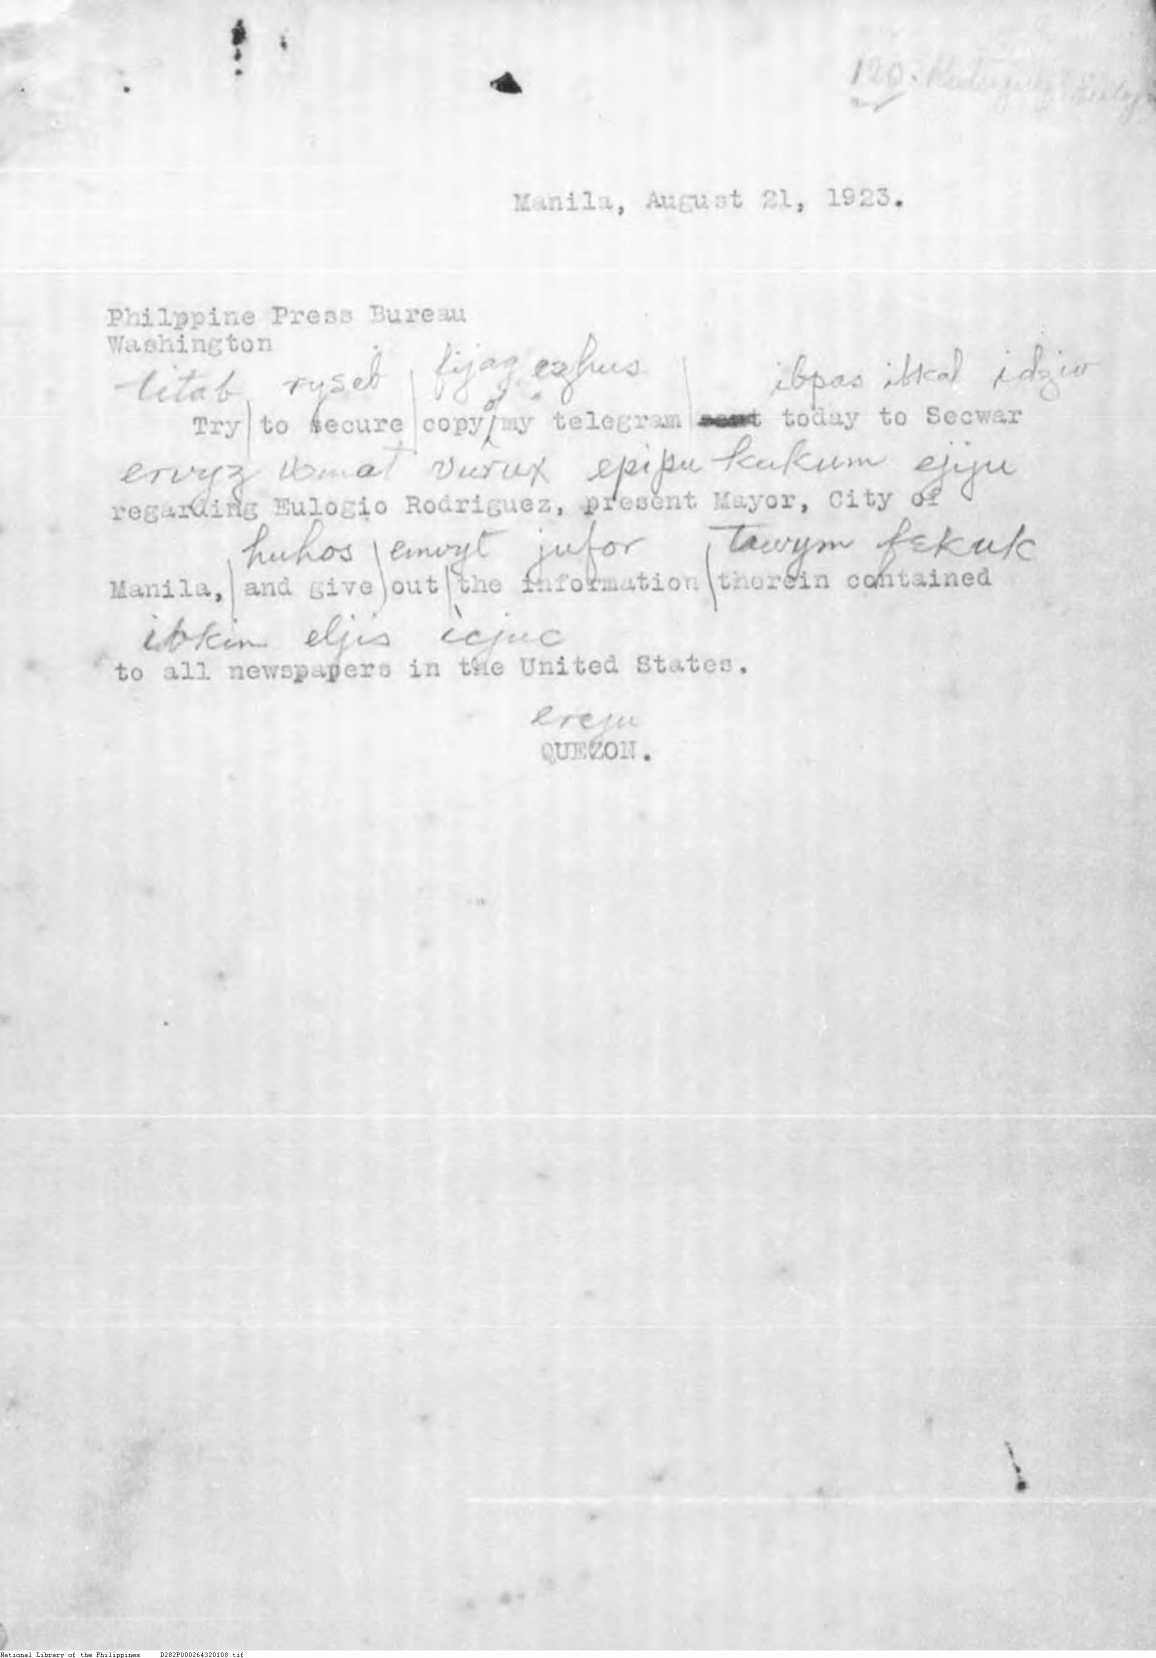 120.
Manila, August 21, 1923.
Philppine Press Bureau
Washington
titab ryseb fijag ezhus ibpas ibkal idziw
Try to secure copy of my telegram today to Secwar
ervyz vurux epipu kukum ejiju
regarding Eulogio Rodriguez, present Mayor, City of
huhos emvyt jufor tawym fekuk
Manila, and give out the information therein contained
ibkin eljis icjuc
to all newspapers in the United States.
ereju
QUEZON.
National Library of the Philippines D282P000264320108.tif